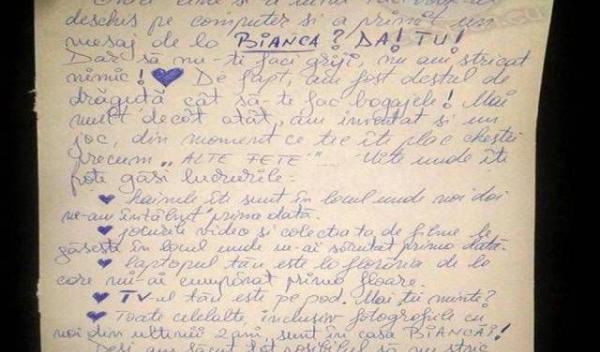 deschis pe computer și a primit un
mesaj de la BIANCA? DA! TU!
Dar să nu-ți faci griji, nu am stricat
nimic! De fapt, am fost destul de
drăguță cât să-ți fac bagajele! Mai
mult decât atât, am inventat și un
joc, din moment ce ție îți plac chestii
precum "ALTE FETE" Uite unde îți
poți găsi lucrurile:
hainele îți sunt în locul unde noi doi
ne-am întâlnit prima dată.
jocurile video și colecția ta de filme le
găsești în locul unde m-ai sărutat prima dată.
laptopul tău este la florăria de la
care mi-ai cumpărat prima floare.
TV-ul tău este pe pod. Mai ții minte?
Toate celelalte, inclusiv fotografiile cu
noi din ultimii 2 ani, sunt în casa BIANCĂI!
Deși am făcut tot posibilul să nu stric